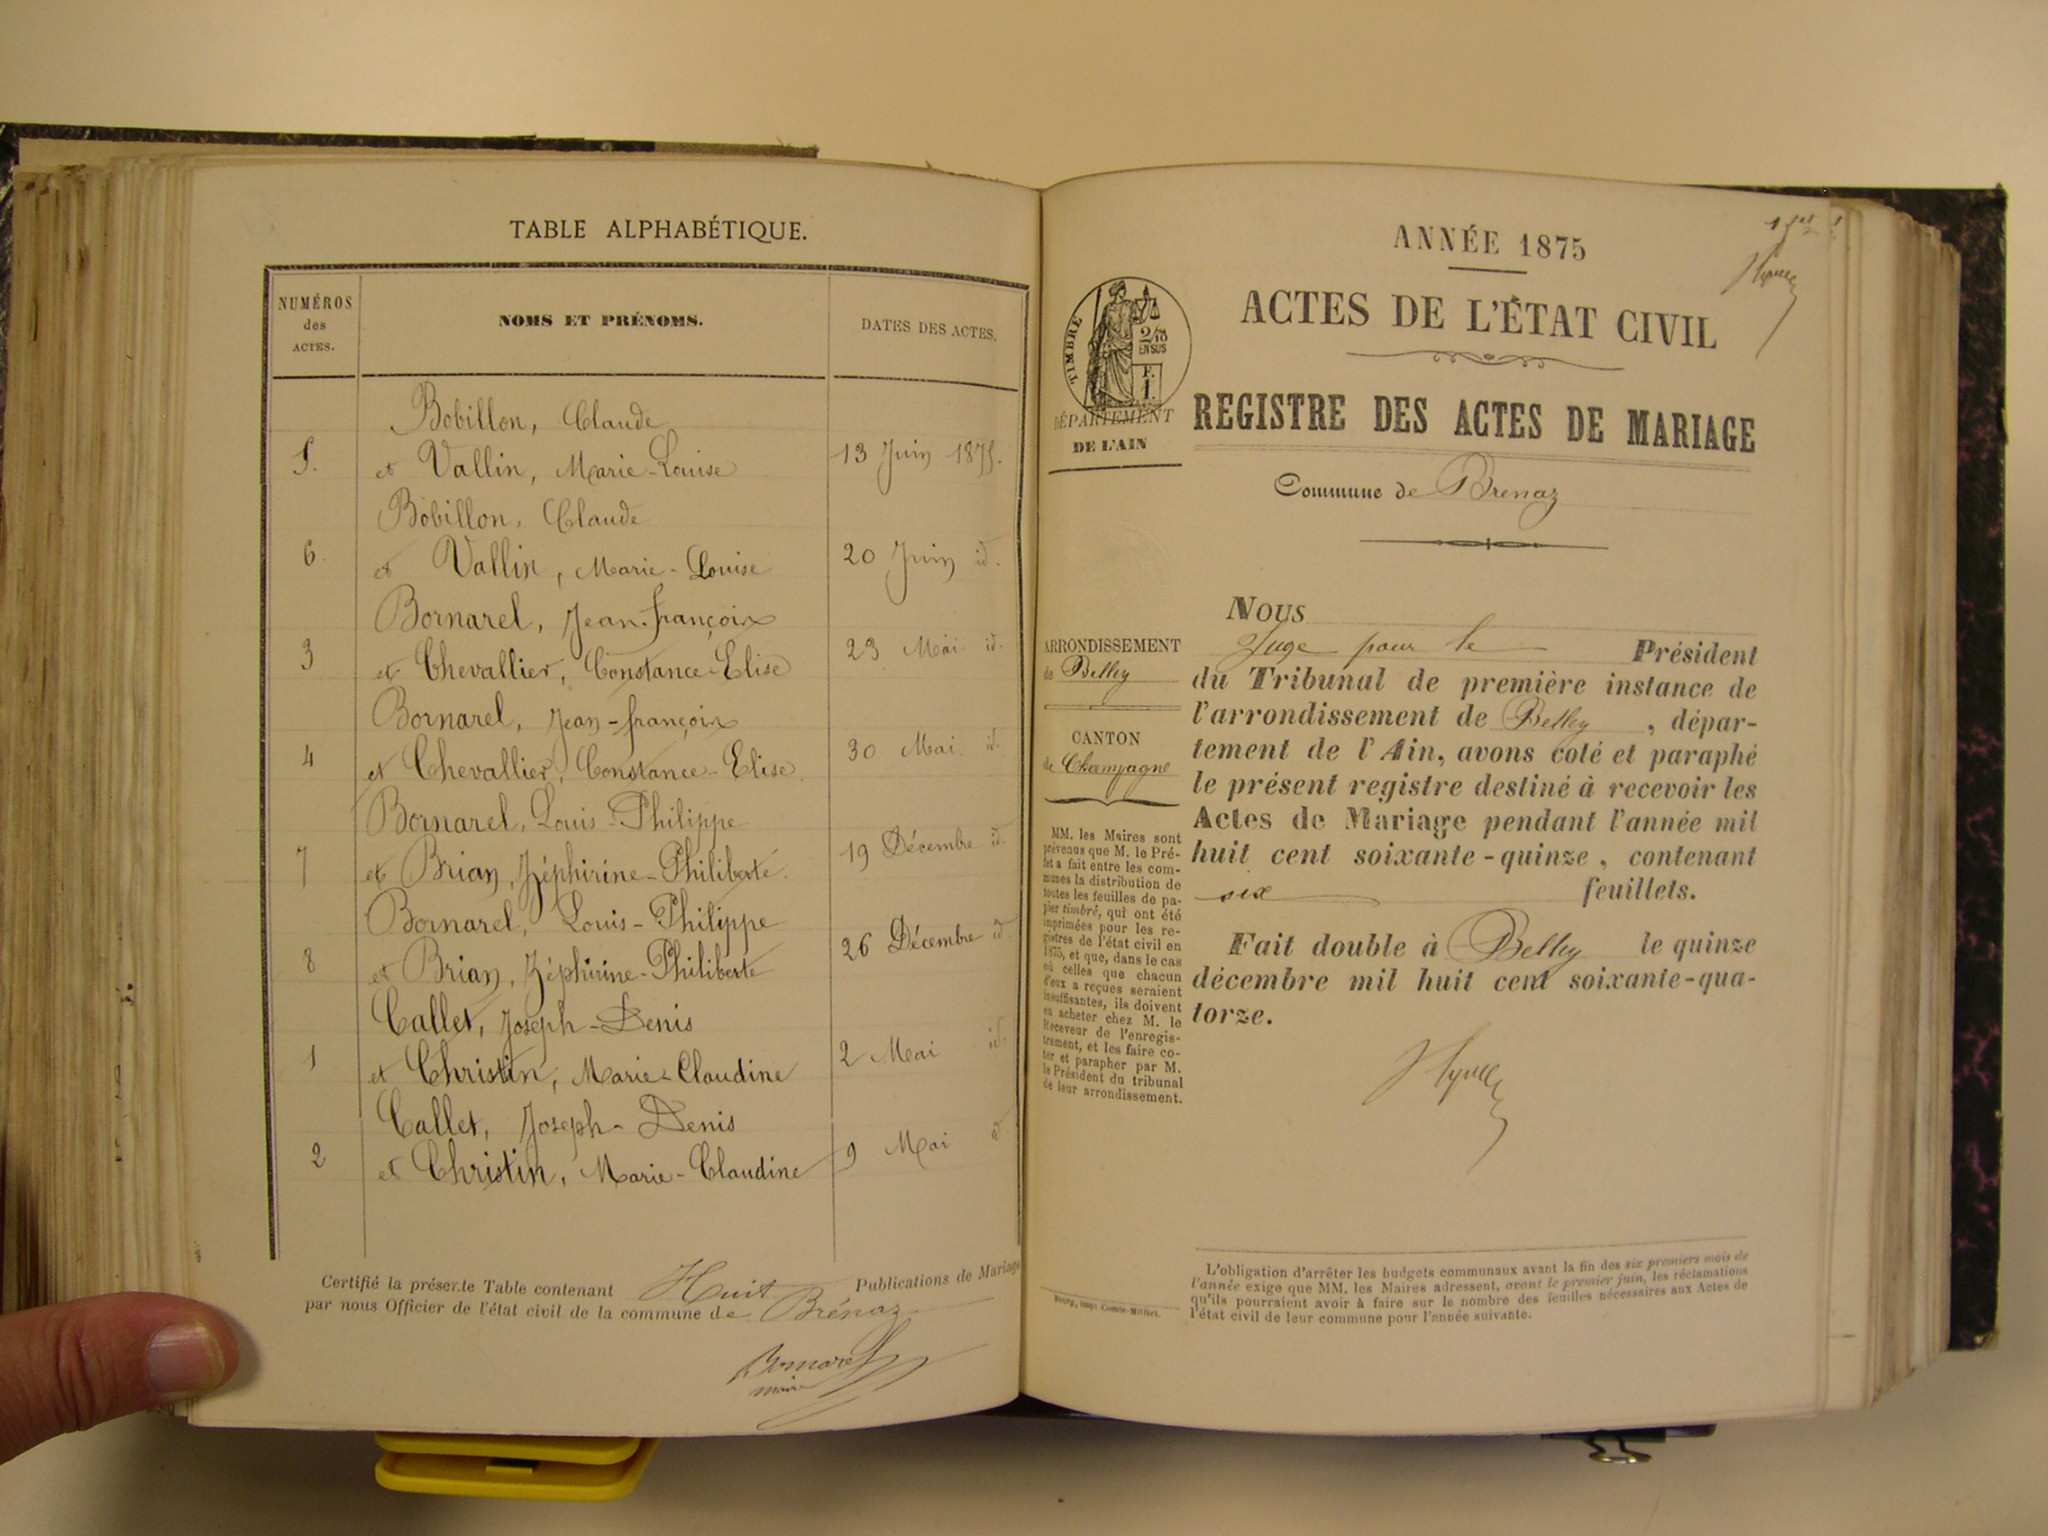 TABLE ALPHABÉTIQUE.
NUMÉROS
des
ACTES.
NOMS ET PRÉNOMS.
DATES DES ACTES.
Bobillon, Claude
5. et Vallin, Marie-Louise 13 Juin 1875.
Bobillon, Claude
6. et Vallin, Marie-Louise 20 Juin id.
Bornarel, Jean-françois
3 et Chevallier, Constance-Elise 23 Mai id.
Bornarel, Jean-françois
4 et Chevallier, Constance-Elise. 30 Mai id.
Bornarel, Louis-Philippe
7 et Brian, Zéphirine-Philiberte. 19 Décembre id.
Bornarel, Louis-Philippe
8 et Brian, Zéphirine-Philiberte 26 Décembre id.
Callet, Joseph-Denis
1 et Christin, Marie-Claudine 2 Mai id.
Callet, Joseph-Denis
2 et Christin, Marie-Claudine 9 Mai id
Certifié la présente Table contenant Huit Publications de Mariage
par nous Officier de l'état civil de la commune de Brénaz
Bornarel
maire
ANNÉE 1875
ACTES DE L'ÉTAT CIVIL
TIMBRE
2/10
EN SUS
F.
1.
DÉPARTEMENT
DE L'AIN
REGISTRE DES ACTES DE MARIAGE
Commune de Brenaz
ARRONDISSEMENT
de Belley
CANTON
de Champagne
MM. les Maires sont
prévenus que M. le Pré-
fet a fait entre les com-
munes la distribution de
toutes les feuilles de pa-
pier timbré, qui ont été
imprimées pour les re-
gistres de l'état civil en
1875, et que, dans le cas
où celles que chacun
d'eux a reçues seraient
insuffisantes, ils doivent
en acheter chez M. le
Receveur de l'enregis-
trement, et les faire co-
ter et parapher par M.
le Président du tribunal
de leur arrondissement.
Nous
Juge pour le Président
du Tribunal de première instance de
l'arrondissement de Belley, dépar-
tement de l'Ain, avons coté et paraphé
le présent registre destiné à recevoir les
Actes de Mariage pendant l'année mil
huit cent soixante-quinze, contenant
six feuillets.
Fait double à Belley le quinze
décembre mil huit cent soixante-qua-
torze.
L'obligation d'arrêter les budgets communaux avant la fin des six premiers mois de
l'année exige que MM. les Maires adressent, avant le premier juin, les réclamations
qu'ils pourraient avoir à faire sur le nombre des feuilles nécessaires aux Actes de
l'état civil de leur commune pour l'année suivante.